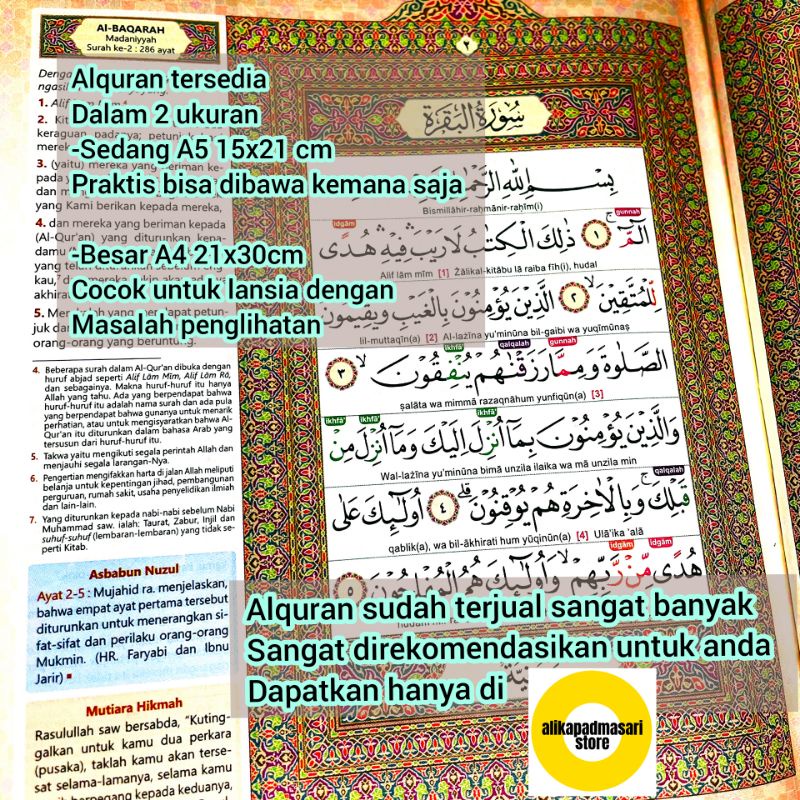 Al-BAQARAH
Madaniyyah
Surah ke-2 : 286 ayat
Alquran tersedia
Dalam 2 ukuran
-Sedang A5 15x21 cm
Praktis bisa dibawa kemana saja
-Besar A4 21x30cm
Cocok untuk lansia dengan
Masalah penglihatan
3. (yaitu) mereka yang beriman ke-
yang Kami berikan kepada mereka,
4. dan mereka yang beriman kepada
(Al-Qur'an) yang diturunkan kepa-
orang-orang yang beruntung.
4. Beberapa surah dalam Al-Qur'an dibuka dengan
huruf abjad seperti Alif Lām Mīm, Alif Lām Rā,
dan sebagainya. Makna huruf-huruf itu hanya
Allah yang tahu. Ada yang berpendapat bahwa
huruf-huruf itu adalah nama surah dan ada pula
yang berpendapat bahwa gunanya untuk menarik
perhatian, atau untuk mengisyaratkan bahwa Al-
Qur'an itu diturunkan dalam bahasa Arab yang
tersusun dari huruf-huruf itu.
5. Takwa yaitu mengikuti segala perintah Allah dan
menjauhi segala larangan-Nya.
6. Pengertian mengifakkan harta di jalan Allah meliputi
belanja untuk kepentingan jihad, pembangunan
perguruan, rumah sakit, usaha penyelidikan ilmiah
dan lain-lain.
7. Yang diturunkan kepada nabi-nabi sebelum Nabi
Muhammad saw. ialah: Taurat, Zabur, Injil dan
suhuf-suhuf (lembaran-lembaran) yang tidak se-
perti Kitab.
Asbabun Nuzul
Ayat 2-5 : Mujahid ra. menjelaskan,
bahwa empat ayat pertama tersebut
diturunkan untuk menerangkan si-
fat-sifat dan perilaku orang-orang
Mukmin. (HR. Faryabi dan Ibnu
Jarir)
Mutiara Hikmah
Rasulullah saw bersabda, "Kuting-
galkan untuk kamu dua perkara
(pusaka), taklah kamu akan terse-
sat selama-lamanya, selama kamu
berpegang kepada keduanya,
٢
سُوْرَةُ الْبَقَرَةِ
بِسْمِ اللّٰهِ الرَّحْمٰنِ الرَّحِيْمِ
Bismillāhir-raḥmānir-raḥīm(i)
idgām gunnah
الۤمّۤ ۚ ١ ذٰلِكَ الْكِتٰبُ لَا رَيْبَ ۛ فِيْهِ ۛ هُدًى
Alif lām mīm [1] Żālikal-kitābu lā raiba fīh(i), hudal
لِّلْمُتَّقِيْنَ ۙ ٢ الَّذِيْنَ يُؤْمِنُوْنَ بِالْغَيْبِ وَيُقِيْمُوْنَ
lil-muttaqīn(a) [2] Al-lażīna yu'minūna bil-gaibi wa yuqīmūnaṣ
ikhfā' qalqalah gunnah
الصَّلٰوةَ وَمِمَّا رَزَقْنٰهُمْ يُنْفِقُوْنَ ۙ ٣
ṣalāta wa mimmā razaqnāhum yunfiqūn(a) [3]
ikhfā' ikhfā' ikhfā'
وَالَّذِيْنَ يُؤْمِنُوْنَ بِمَآ اُنْزِلَ اِلَيْكَ وَمَآ اُنْزِلَ مِنْ
Wal-lażīna yu'minūna bimā unzila ilaika wa mā unzila min
qalqalah
قَبْلِكَ ۚ وَبِالْاٰخِرَةِ هُمْ يُوْقِنُوْنَ ۗ ٤ اُولٰۤىِٕكَ عَلٰى
qablik(a), wa bil-ākhirati hum yūqinūn(a) [4] Ulā'ika 'alā
idgām idgām
هُدًى مِّنْ رَّبِّهِمْ ۙ وَاُولٰۤىِٕكَ هُمُ الْمُفْلِحُوْنَ
Alquran sudah terjual sangat banyak
Sangat direkomendasikan untuk anda
Dapatkan hanya di
alikapadmasari
store